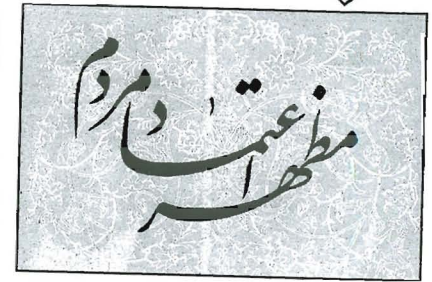 مظهر اعتماد مردم